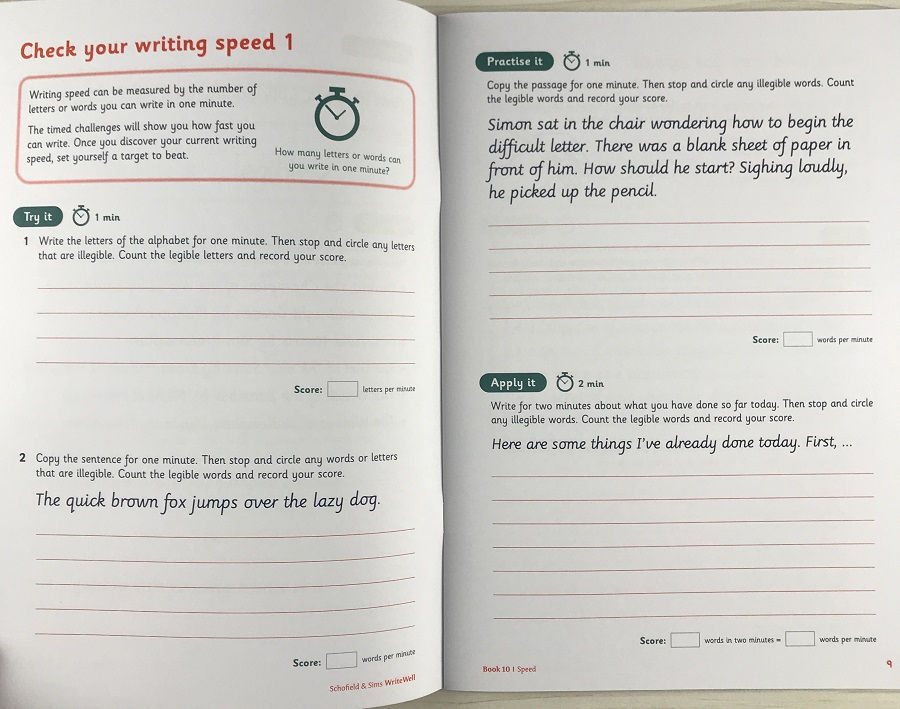 Check your writing speed 1
Writing speed can be measured by the number of
letters or words you can write in one minute.
The timed challenges will show you how fast you
can write. Once you discover your current writing
speed, set yourself a target to beat.
How many letters or words can
you write in one minute?
Try it 1 min
1 Write the letters of the alphabet for one minute. Then stop and circle any letters
that are illegible. Count the legible letters and record your score.
Score: letters per minute
2 Copy the sentence for one minute. Then stop and circle any words or letters
that are illegible. Count the legible words and record your score.
The quick brown fox jumps over the lazy dog.
Score: words per minute
Schofield & Sims WriteWell
Practise it 1 min
Copy the passage for one minute. Then stop and circle any illegible words. Count
the legible words and record your score.
Simon sat in the chair wondering how to begin the
difficult letter. There was a blank sheet of paper in
front of him. How should he start? Sighing loudly,
he picked up the pencil.
Score: words per minute
Apply it 2 min
Write for two minutes about what you have done so far today. Then stop and circle
any illegible words. Count the legible words and record your score.
Here are some things I've already done today. First, ...
Score: words in two minutes = words per minute
Book 10 | Speed
9